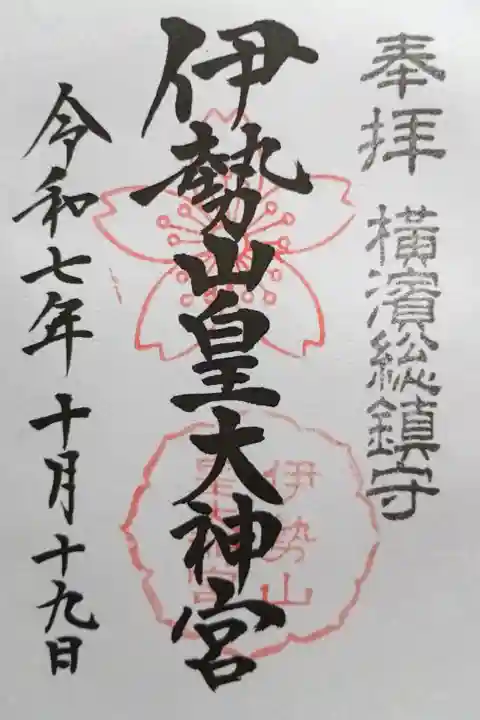 奉拝 横濱総鎮守
伊勢山皇大神宮
伊勢山
皇大神宮
令和七年 十月十九日